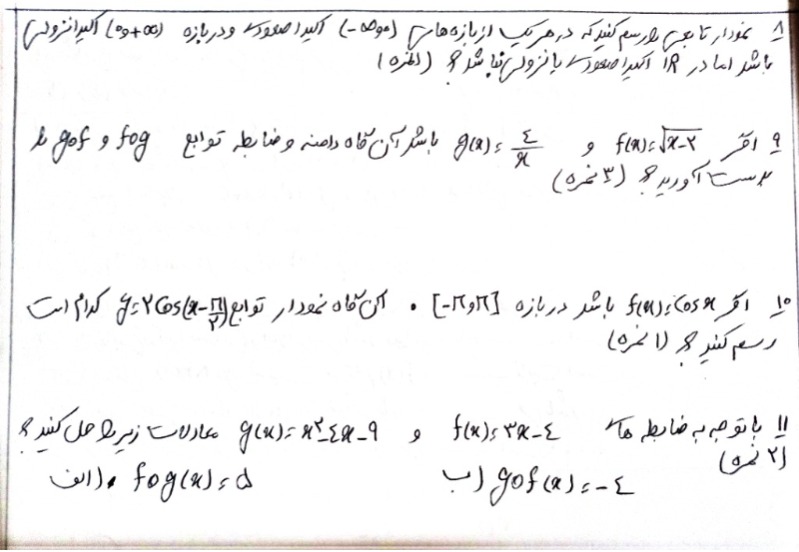 ۸ نمودار تابعی را رسم کنید که در هر یک از بازه های (-∞و۰) اکیدا صعودی و در بازه (۰و+∞) اکیدا نزولی
باشد اما در IR اکیدا صعودی یا نزولی نباشد؟ (۱نمره)
۹ اگر f(x)=√x-۲ و g(x)=۴/x باشد آن گاه دامنه و ضابطه توابع fog و gof را
بدست آورید؟ (۳ نمره)
۱۰ اگر f(x)=Cosx باشد در بازه [-π و π] . آن گاه نمودار توابع y=۲Cos(x-π/۲) کدام است
رسم کنید؟ (۱ نمره)
۱۱ با توجه به ضابطه های f(x)=۳x-۴ و g(x)=x²-۴x-۹ معادلات زیر را حل کنید؟
(۲ نمره)
الف) fog(x)=۵ ب) gof(x)=-۴